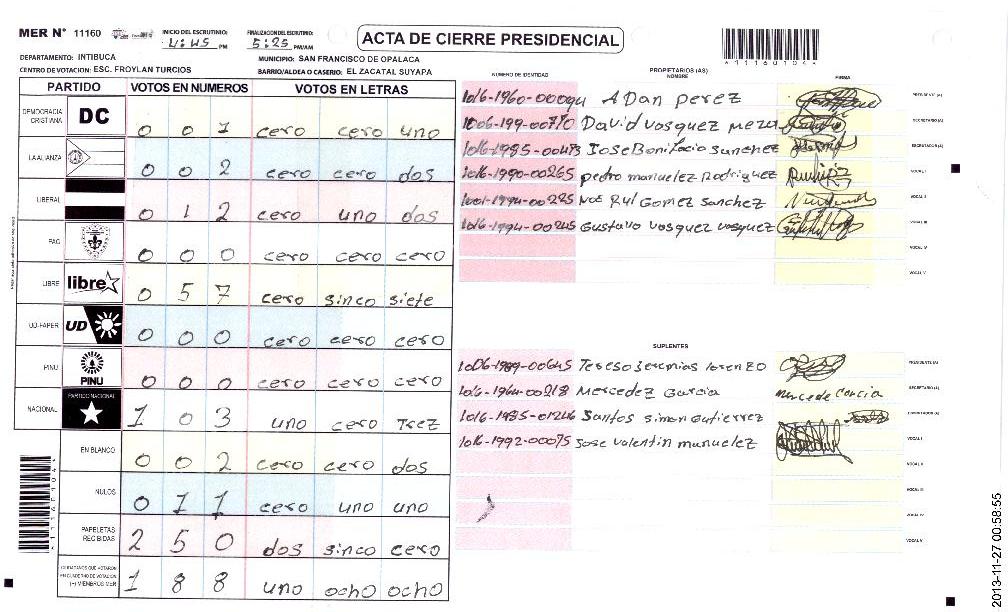 MER N° 11160 INICIO DEL ESCRUTINIO: 4:45 PM FINALIZACION DEL ESCRUTINIO: 5:25 PM/AM
ACTA DE CIERRE PRESIDENCIAL
DEPARTAMENTO: INTIBUCA MUNICIPIO: SAN FRANCISCO DE OPALACA
CENTRO DE VOTACION: ESC. FROYLAN TURCIOS BARRIO/ALDEA O CASERIO: EL ZACATAL SUYAPA
PARTIDO VOTOS EN NUMEROS VOTOS EN LETRAS
DEMOCRACIA CRISTIANA DC 0 0 1 cero cero uno
LA ALIANZA 0 0 2 cero cero dos
LIBERAL 0 1 2 cero uno dos
PAC 0 0 0 cero cero cero
LIBRE libre 0 5 7 cero sinco siete
UD-FAPER UD 0 0 0 cero cero cero
PINU PINU 0 0 0 cero cero cero
NACIONAL PARTIDO NACIONAL 1 0 3 uno cero Trez
EN BLANCO 0 0 2 cero cero dos
NULOS 0 1 1 cero uno uno
PAPELETAS RECIBIDAS 2 5 0 dos sinco cero
CIUDADANOS QUE VOTARON EN CUADERNO DE VOTACION (+) MIEMBROS MER 1 8 8 uno ocho ocho
PROPIETARIOS (AS)
NUMERO DE IDENTIDAD NOMBRE FIRMA
ADan perez PRESIDENTE (A)
1006-199-00770 David vosquez meza SECRETARIO (A)
1016-1985-00473 Jose Bonifacio sanchez ESCRUTADOR (A)
1016-1990-00265 pedro manuelez Rodriguez VOCAL I
Rul Gomez sanchez VOCAL II
1016-1994-00245 Gustavo vosquez vosquez VOCAL III
VOCAL IV
VOCAL V
SUPLENTES
1006-1989-00645 lorenzo PRESIDENTE (A)
1016-1964-00218 Mercedez Garcia SECRETARIO (A)
1016-1985-01246 Santos simon Gutierrez ESCRUTADOR (A)
1016-1992-00075 Jose valentin manuelez VOCAL I
VOCAL II
VOCAL III
VOCAL IV
VOCAL V
2013-11-27 00:58:55